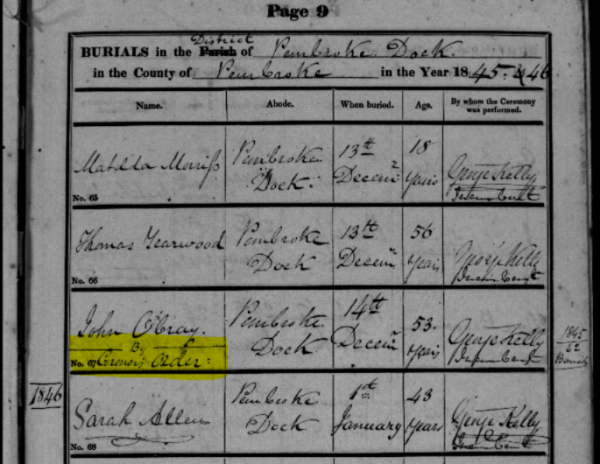 Page 9
BURIALS in the Parish District of Pembroke Dock.
in the County of Pembroke in the Year 1845. & 46
Name. Abode. When buried. Age. By whom the Ceremony was performed.
Matilda Morriss
No. 65
Pembroke Dock.
13th Decemr
18 years
George Kelly
Thomas Yearwood
No. 66
Pembroke Dock
13th Decemr
56 years
George Kelly
John O'Bray.
By
No. 67 Coroner's Order:
Pembroke Dock
14th Decemr
53. Years
George Kelly
1845
62
1846
Sarah Allen
No. 68
Pembroke Dock
1st January
43 Years
George Kelly